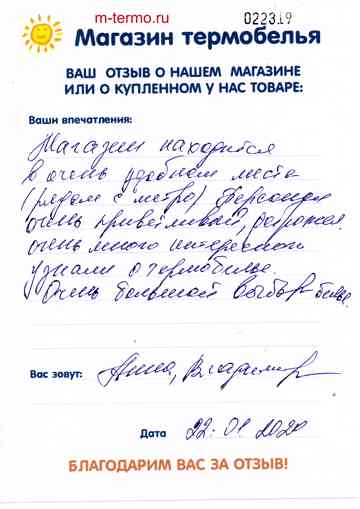 m-termo.ru
022319
Магазин термобелья
ВАШ ОТЗЫВ О НАШЕМ МАГАЗИНЕ
ИЛИ О КУПЛЕННОМ У НАС ТОВАРЕ:
Ваши впечатления:
Магазин находится
в очень удобном месте
(рядом с метро) Персонал
очень приветливый,
очень много интересного
узнали о термобелье.
Очень большой выбор белья.
Вас зовут: Анна, Владимир
Дата 22.01.2020
БЛАГОДАРИМ ВАС ЗА ОТЗЫВ!